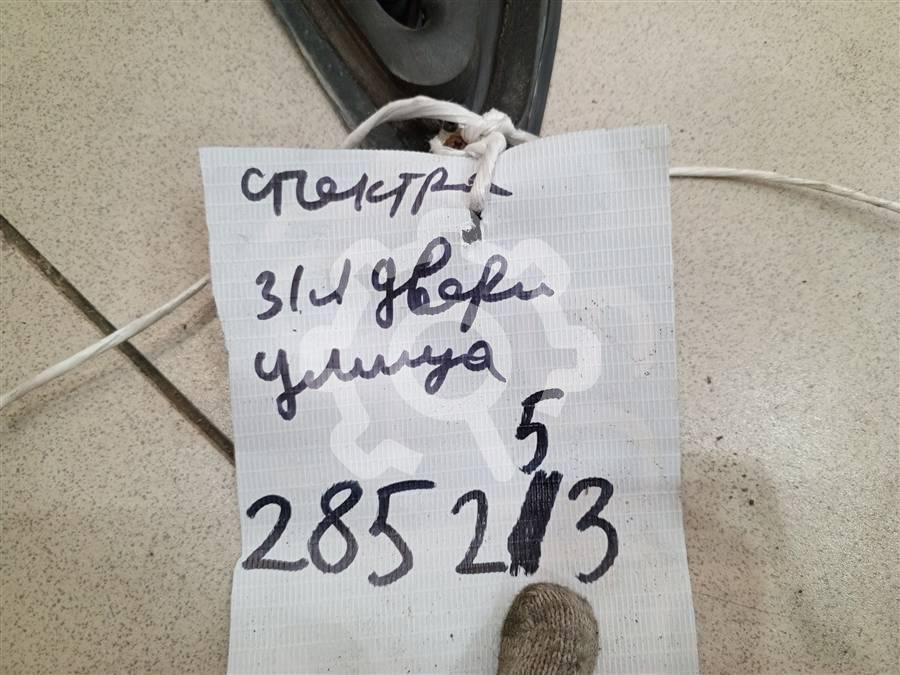 спектра
з/л двери
улица
285 253